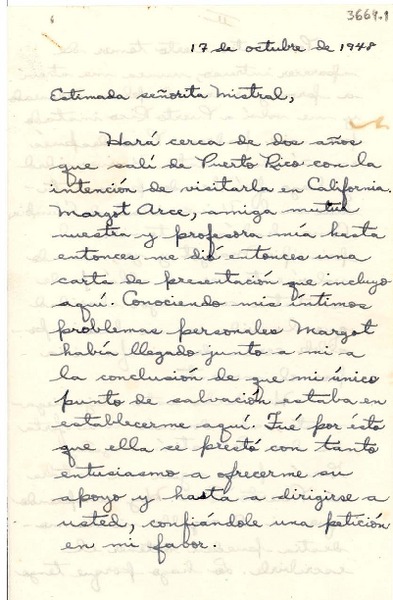 3664.1
17 de octubre de 1948
Estimada señorita Mistral,
Hará cerca de dos años
que salí de Puerto Rico con la
intención de visitarla en California.
Margot Arce, amiga mutua
nuestra y profesora mía hasta
entonces me dió entonces una
carta de presentación que incluyo
aquí. Conociendo mis íntimos
problemas personales Margot
había llegado junto a mi a
la conclusión de que mi único
punto de salvación estaba en
establecerme aquí. Fué por ésto
que ella se prestó con tanto
entusiasmo a ofrecerme su
apoyo y hasta a dirigirse a
usted, confiándole una petición
en mi favor.